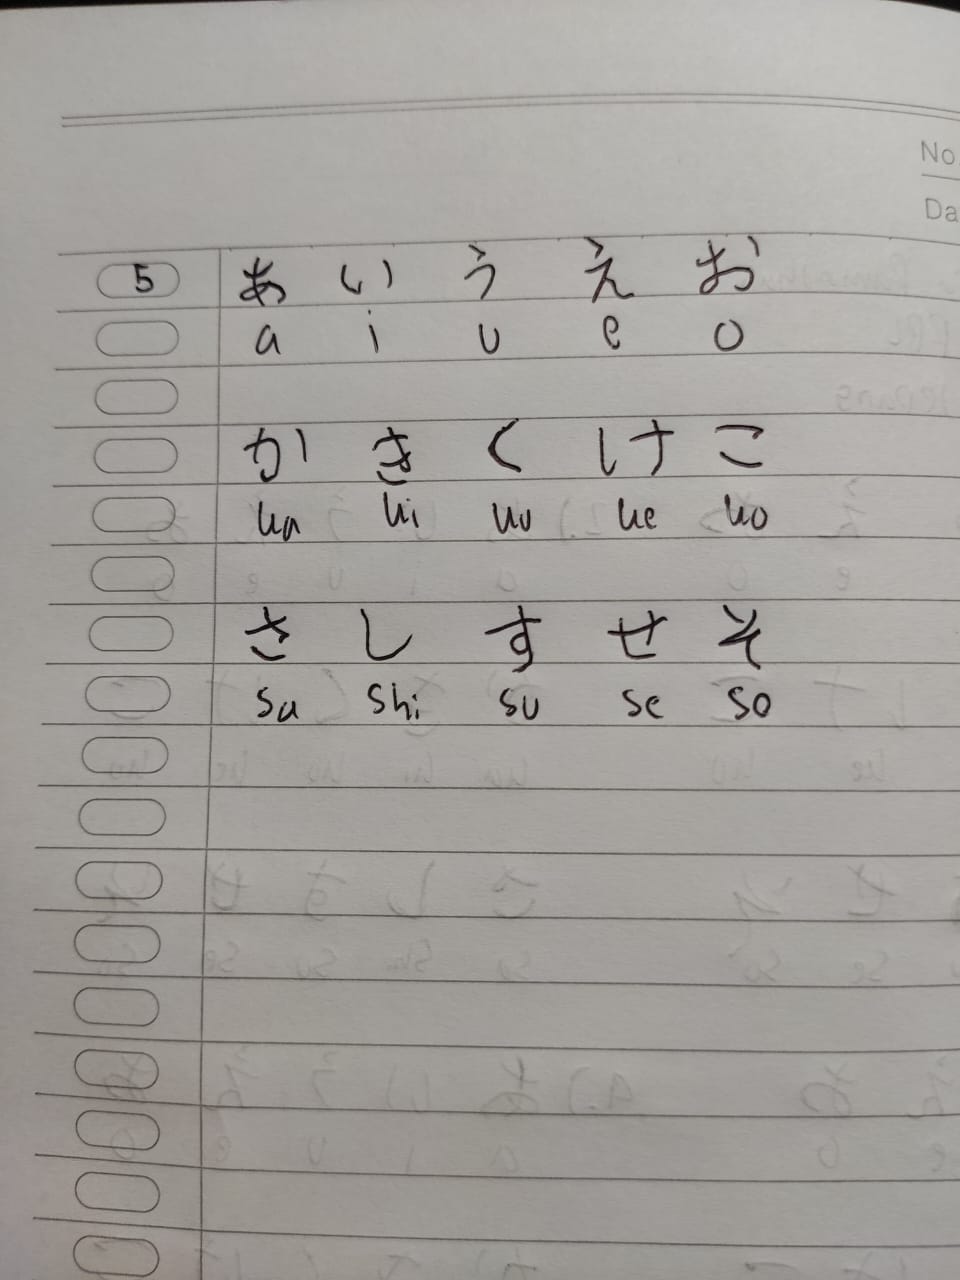 No
Da
5 あ い う え お
a i u e o
か き く け こ
ka ki ku ke ko
さ し す せ そ
sa shi su se so